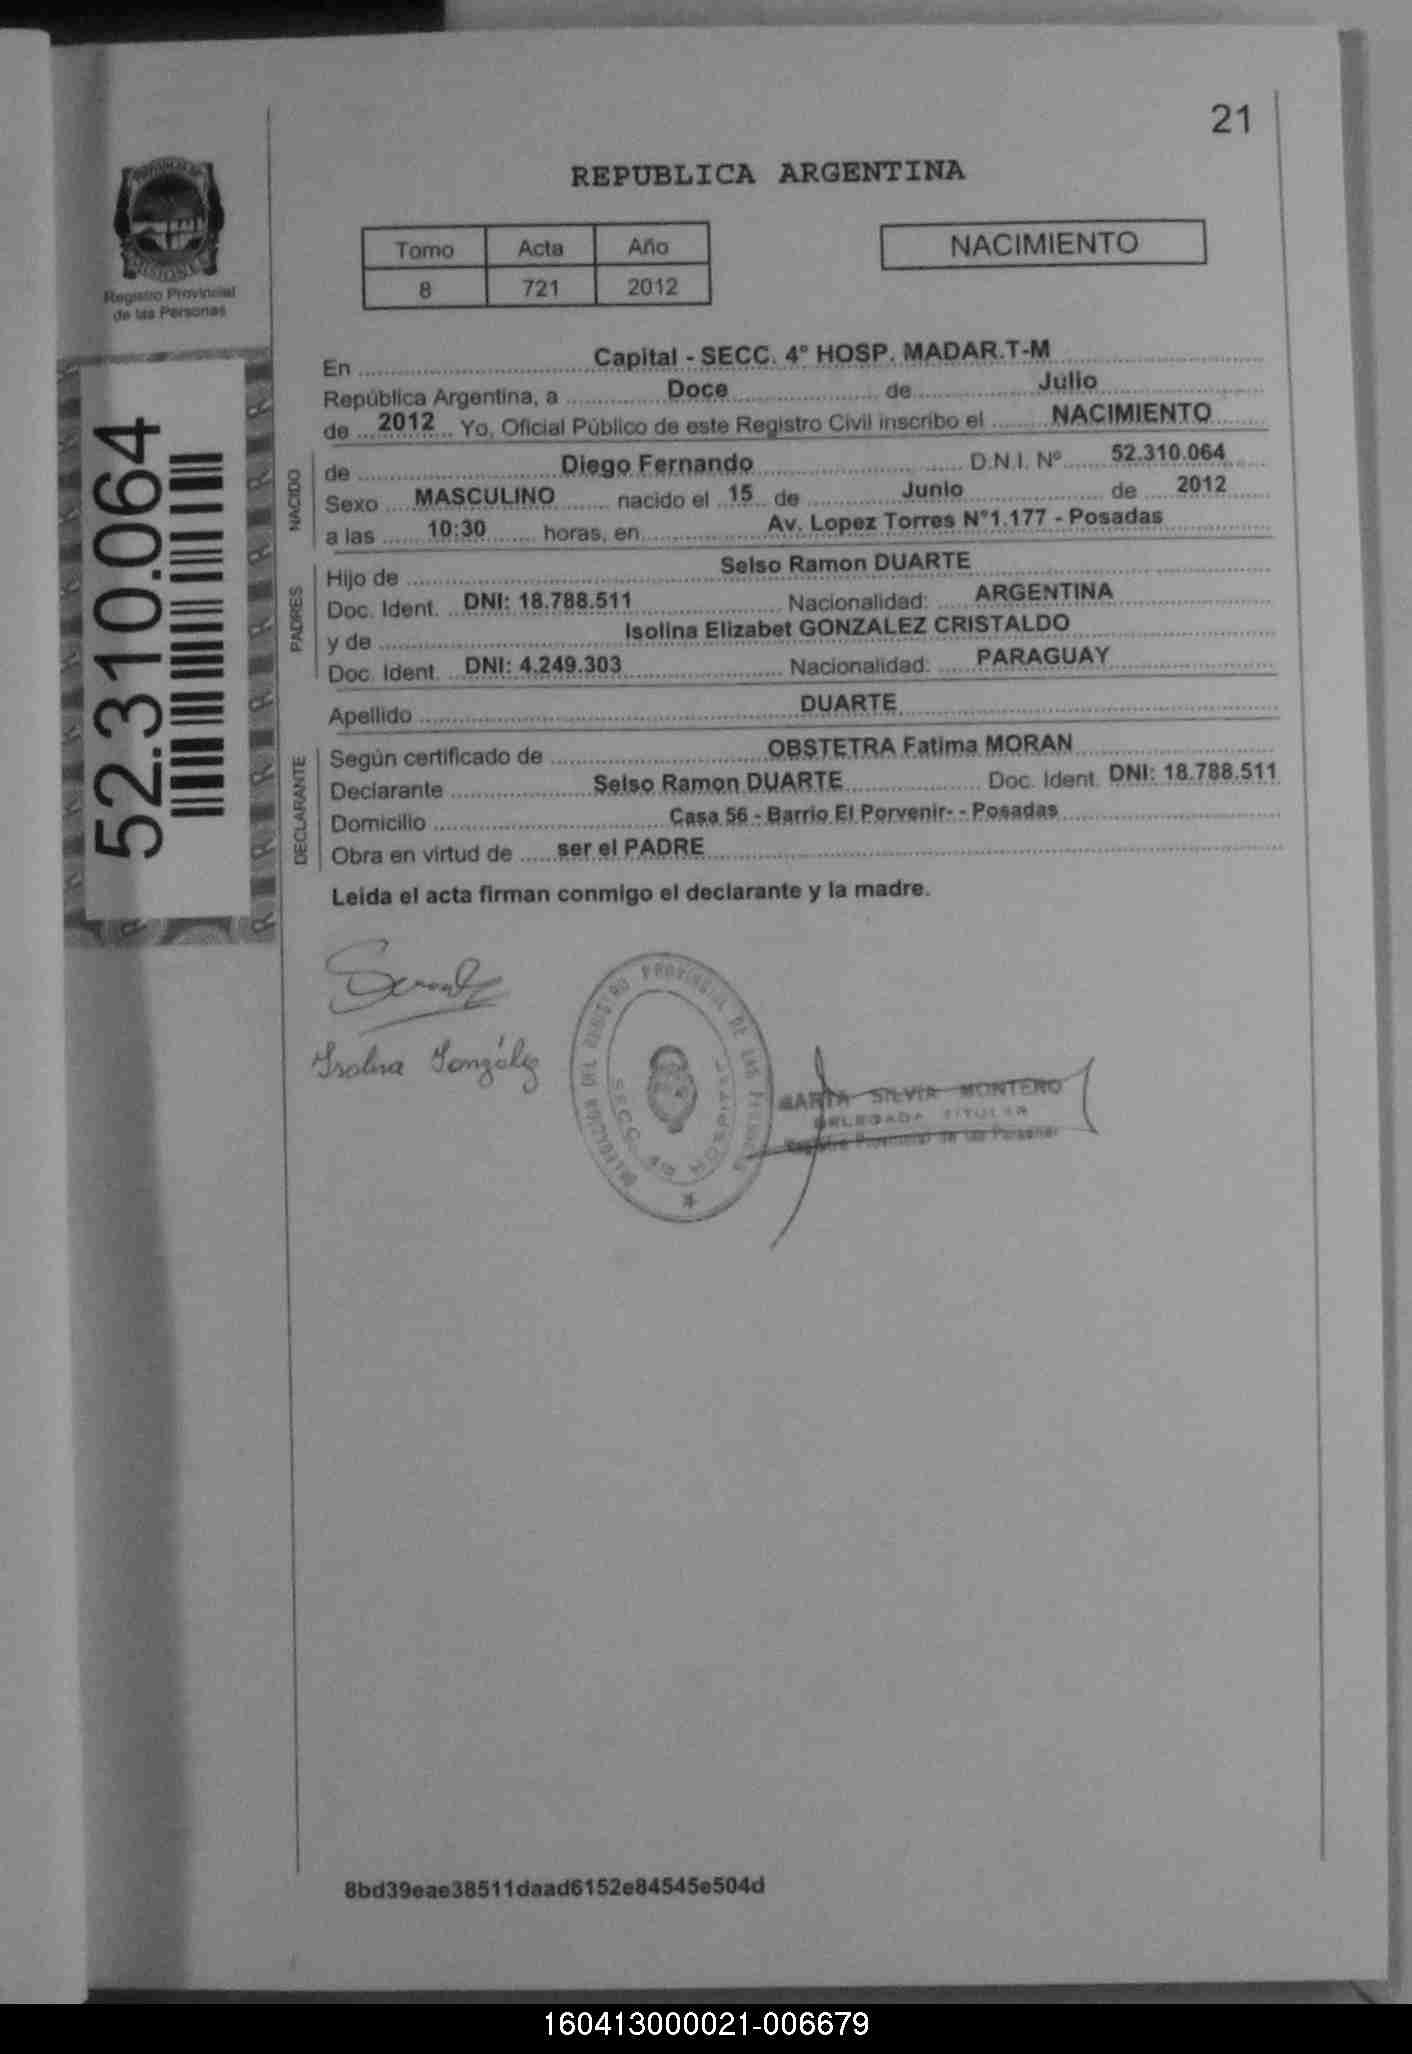 21
REPUBLICA ARGENTINA
PROVINCIA DE
MISIONES
Registro Provincial
de las Personas
Tomo Acta Año
8 721 2012
NACIMIENTO
En Capital - SECC. 4° HOSP. MADAR.T-M
República Argentina, a Doce de Julio
de 2012 Yo, Oficial Público de este Registro Civil inscribo el NACIMIENTO
NACIDO
de Diego Fernando D.N.I. N° 52.310.064
Sexo MASCULINO nacido el 15 de Junio de 2012
a las 10:30 horas, en Av. Lopez Torres N°1.177 - Posadas
PADRES
Hijo de Selso Ramon DUARTE
Doc. Ident. DNI: 18.788.511 Nacionalidad: ARGENTINA
y de Isolina Elizabet GONZALEZ CRISTALDO
Doc. Ident. DNI: 4.249.303 Nacionalidad: PARAGUAY
Apellido DUARTE
DECLARANTE
Según certificado de OBSTETRA Fatima MORAN
Declarante Selso Ramon DUARTE Doc. Ident. DNI: 18.788.511
Domicilio Casa 56 - Barrio El Porvenir- - Posadas
Obra en virtud de ser el PADRE
Leida el acta firman conmigo el declarante y la madre.
52.310.064
Isolina González
DELEGACION DEL REGISTRO PROVINCIAL DE LAS PERSONAS
SECC. 4ta HOSPITAL
MARTA SILVIA MONTERO
DELEGADA TITULAR
Registro Provincial de las Personas
8bd39eae38511daad6152e84545e504d
160413000021-006679